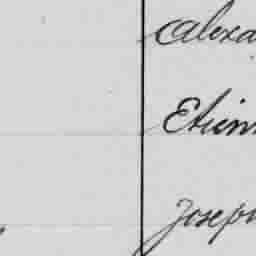 Alexa
Etienn
Joseph